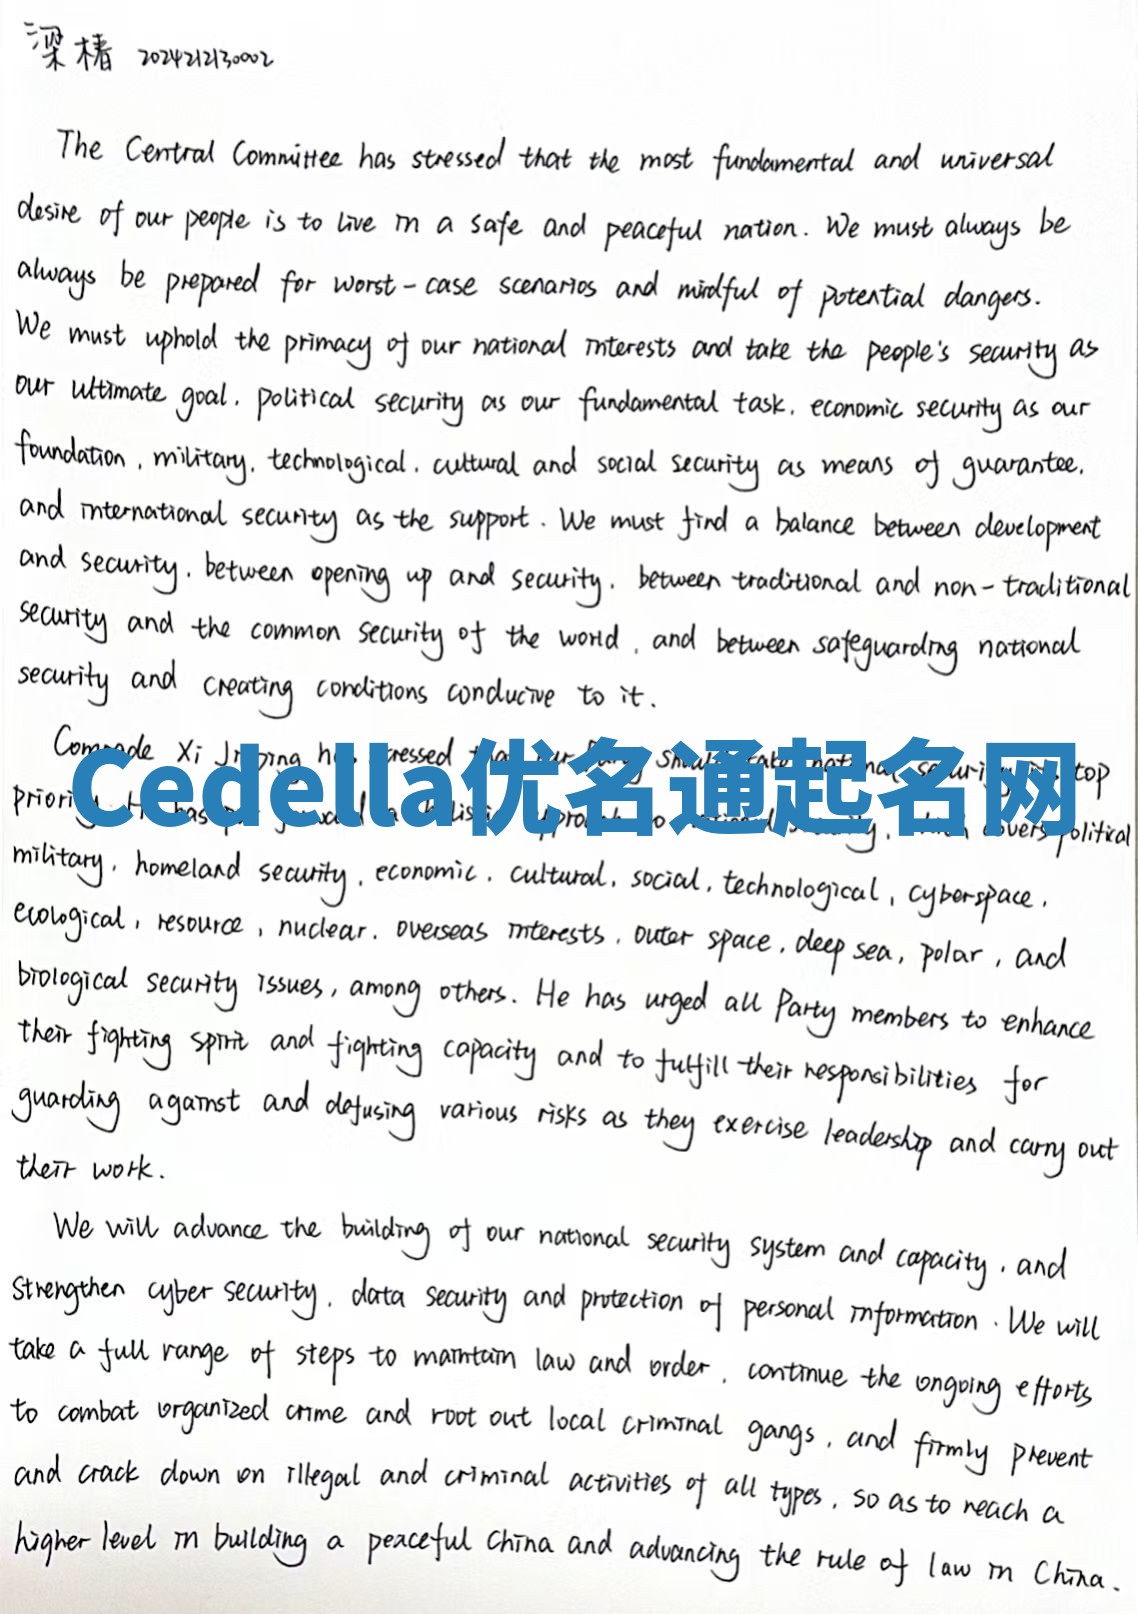 梁椿 2024212130002
The Central Committee has stressed that the most fundamental and universal
desire of our people is to live in a safe and peaceful nation. We must always be
always be prepared for worst-case scenarios and mindful of potential dangers.
We must uphold the primacy of our national interests and take the people's security as
our ultimate goal, political security as our fundamental task, economic security as our
foundation, military, technological, cultural and social security as means of guarantee,
and international security as the support. We must find a balance between development
and security, between opening up and security, between traditional and non-traditional
security and the common security of the world, and between safeguarding national
security and creating conditions conducive to it.
Comrade Xi Jinping has stressed that our Party should take national security top
Cedella优名通起名网
priority. He has a approach to national security, which covers political
military, homeland security, economic, cultural, social, technological, cyberspace,
ecological, resource, nuclear, overseas interests, outer space, deep sea, polar, and
biological security issues, among others. He has urged all Party members to enhance
their fighting spirit and fighting capacity and to fulfill their responsibilities for
guarding against and defusing various risks as they exercise leadership and carry out
their work.
We will advance the building of our national security system and capacity, and
strengthen cyber security, data security and protection of personal information. We will
take a full range of steps to maintain law and order, continue the ongoing efforts
to combat organized crime and root out local criminal gangs, and firmly prevent
and crack down on illegal and criminal activities of all types, so as to reach a
higher level in building a peaceful China and advancing the rule of law in China.